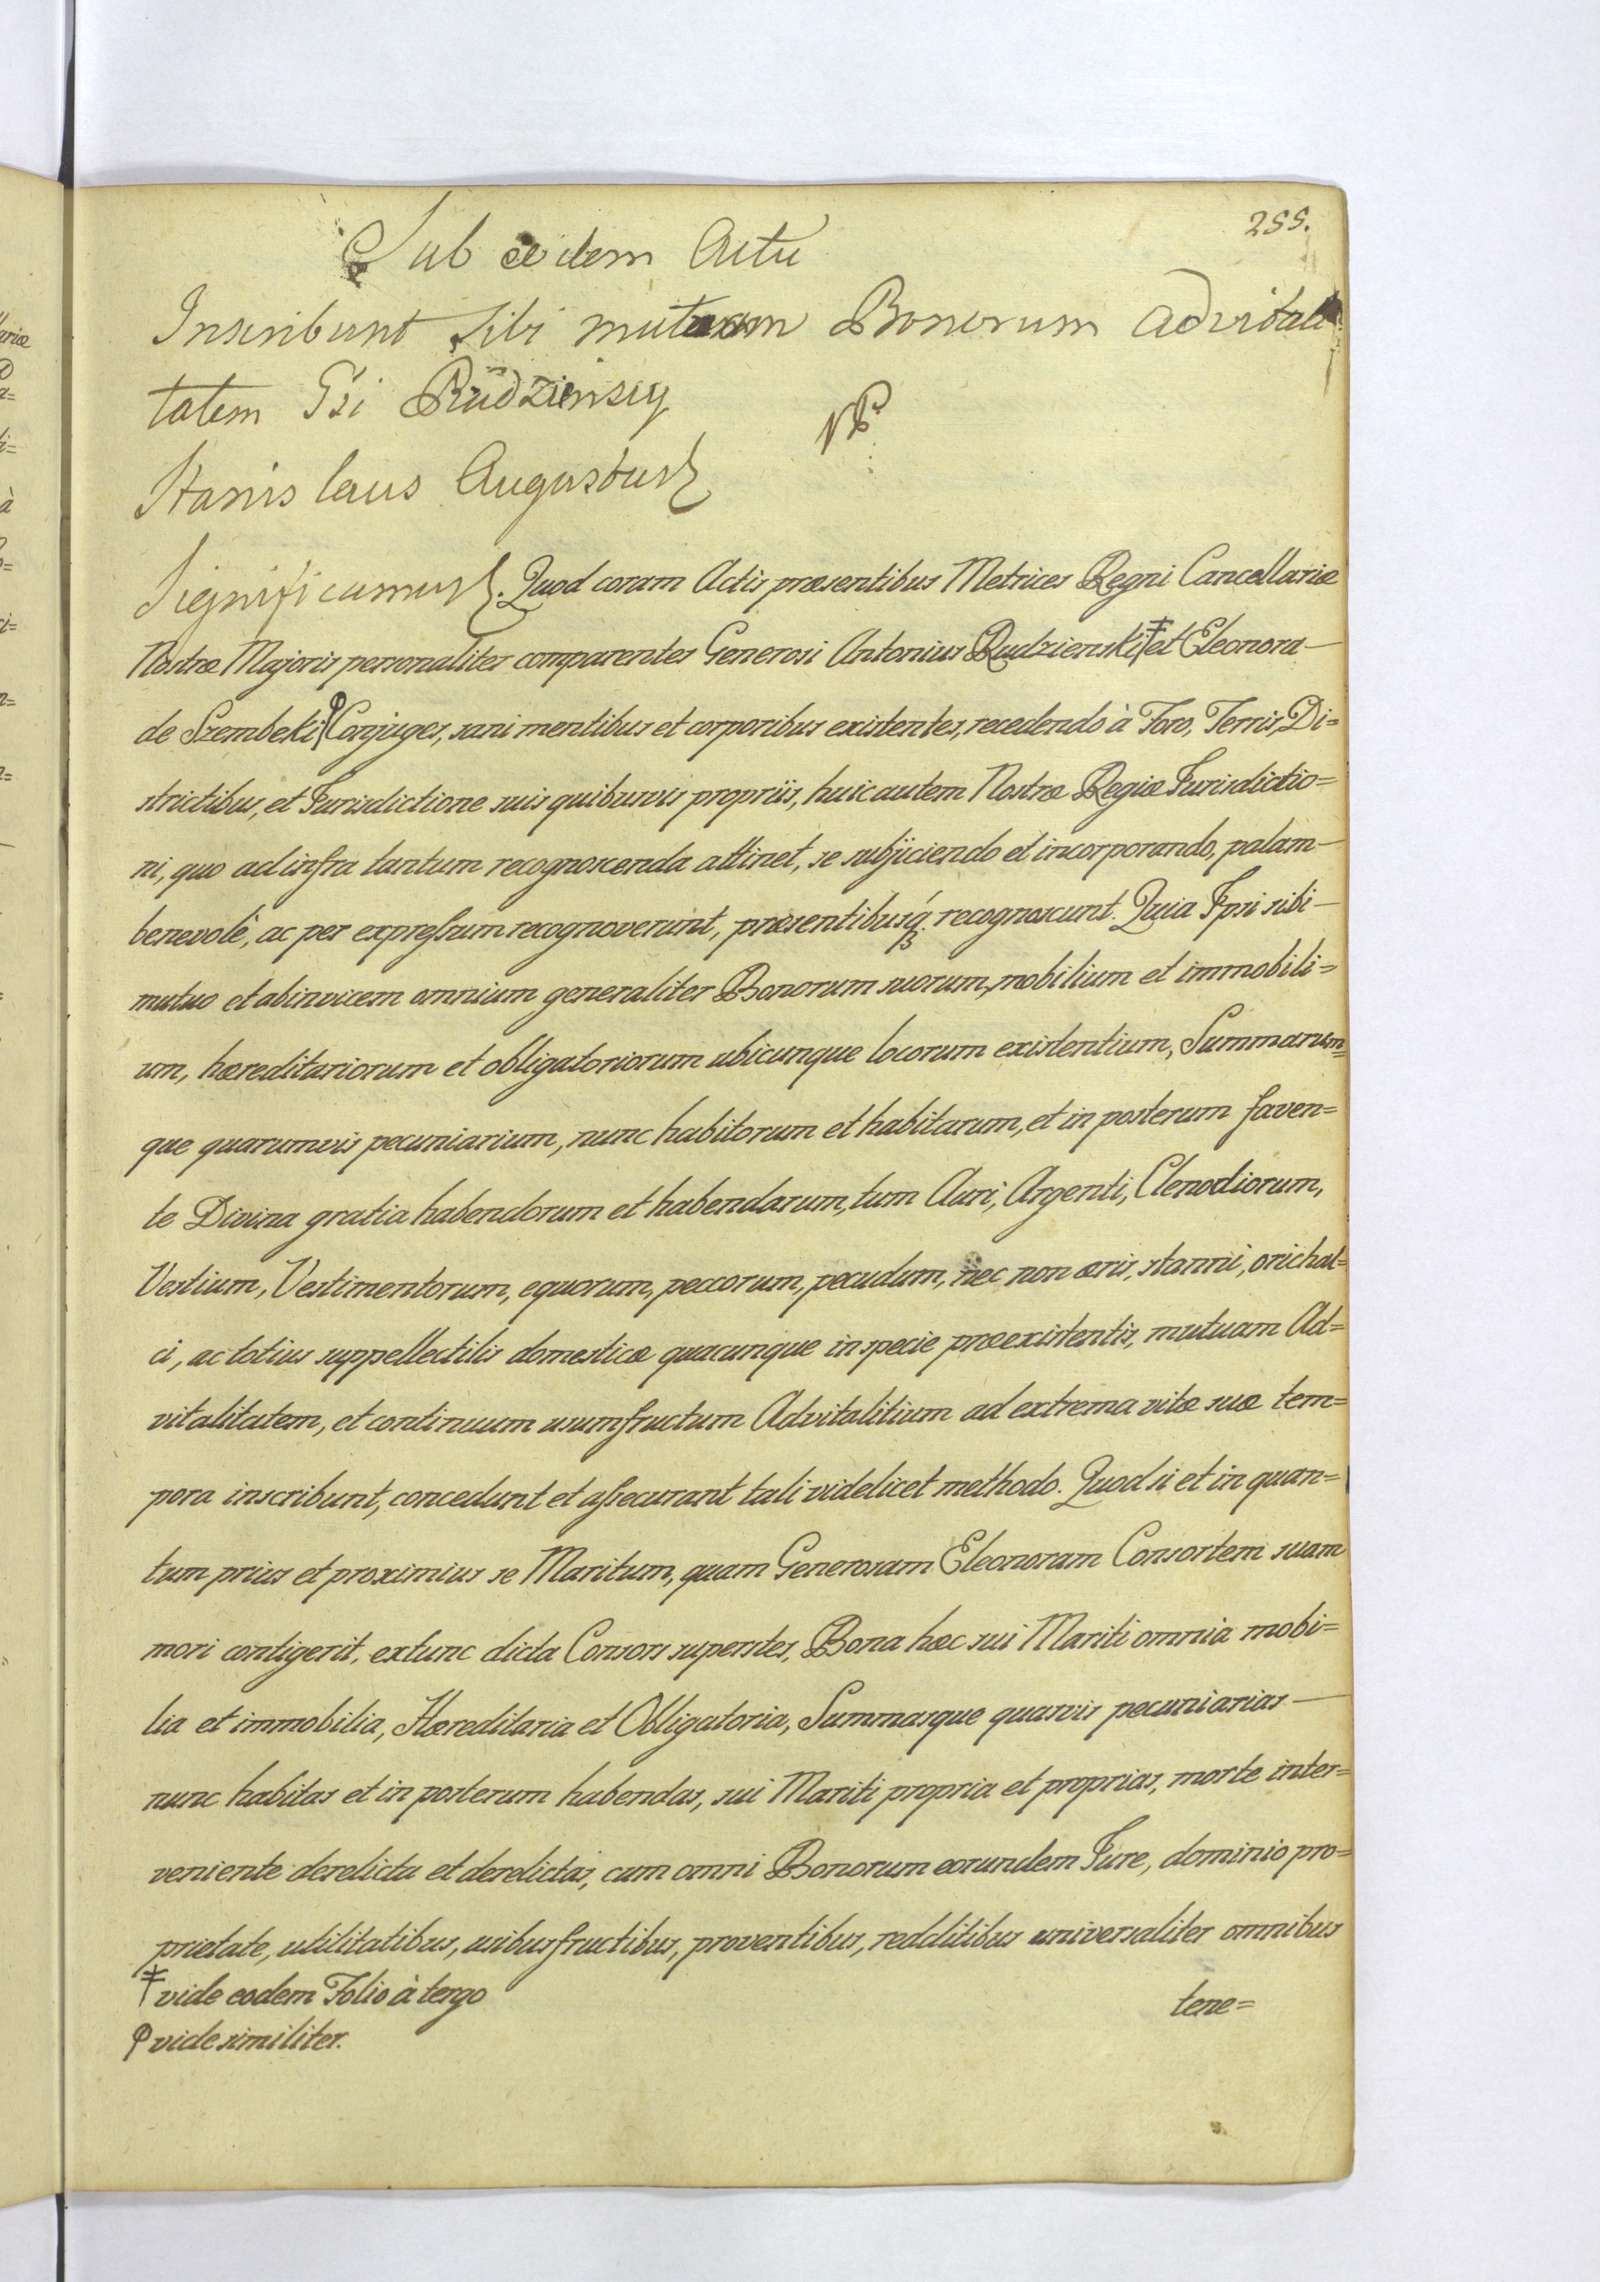 255.
Sub eodem Actu
Inscribunt sibi mutuam Bonorum advitali
tatem Gsi Rudzienscy
NB
Stanislaus Augustus
Significamus. Quod coram Actis præsentibus Metrices Regni Cancellariæ
Nostræ Majoris personaliter comparentes Generosi Antonius Rudzienski ǂ et Eleonora —
de Szembeki φ Conjuges, sani mentibus et corporibus existentes, recedendo à Foro, Terris, Di=
strictibus, et Jurisdictione suis quibusvis propriis, huic autem Nostræ Regiæ Jurisdictio=
ni, quo ad infra tantum recognoscenda attinet, se subjiciendo et incorporando, palam —
benevolè, ac per expressum recognoverunt, præsentibusq́; recognoscunt. Quia Ipsi sibi —
mutuo et abinvicem omnium generaliter Bonorum suorum, mobilium et immobili=
um, hæreditariorum et obligatoriorum ubicunque locorum existentium, Summarum=
que quarumvis pecuniarium, nunc habitorum et habitarum, et in posterum faven=
te Divina gratia habendorum et habendarum, tum Auri, Argenti, Clenodiorum,
Vestium, Vestimentorum, equorum, peccorum, pecudum, nec non æris, stanni, orichal=
ci, ac totius suppellectilis domesticæ quacunque in specie præexistentis, mutuam Ad=
vitalitatem, et continuum usumfructum Advitalitium ad extrema vitæ suæ tem=
pora inscribunt, concedunt et assecurant tali videlicet methodo. Quod si et in quan=
tum prius et proximius se Maritum, quam Generosam Eleonoram Consortem suam
mori contigerit, extunc dicta Consors superstes, Bona hæc sui Mariti omnia mobi=
lia et immobilia, Hæreditaria et Obligatoria, Summasque quasvis pecuniarias —
nunc habitas et in posterum habendas, sui Mariti propria et proprias, morte inter=
veniente derelicta et derelictas, cum omni Bonorum eorundem Jure, dominio pro=
prietate, utilitatibus, usibusfructibus, proventibus, redditibus universaliter omnibus
ǂ vide eodem Folio à tergo
tene=
φ vide similiter.